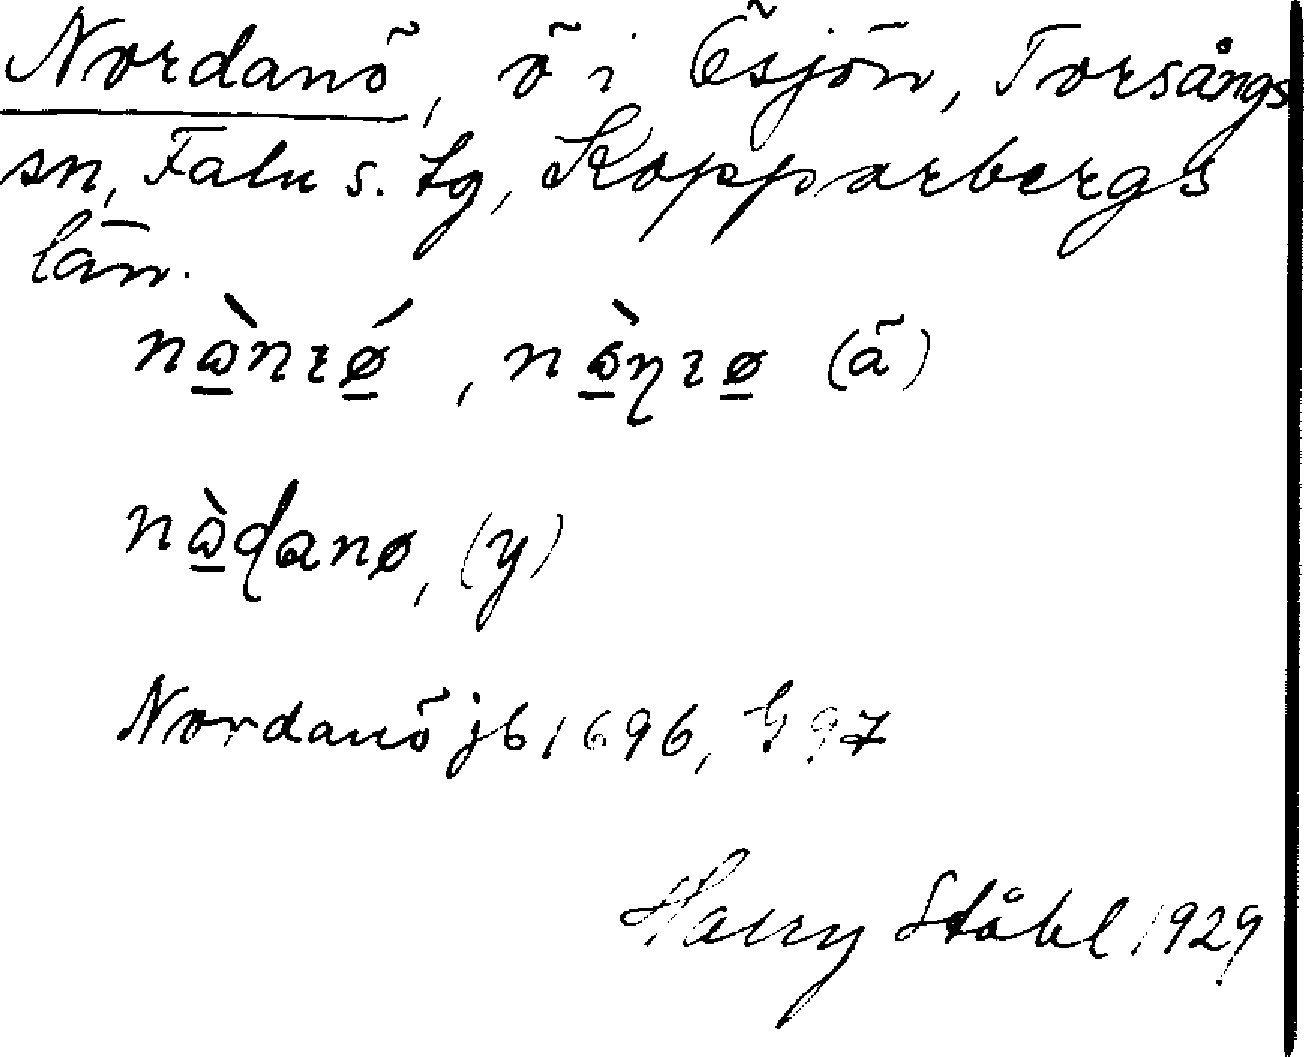 Nordanö, ö i Ösjön, Torsångs
sn, Falu s. tg, Kopparbergs
län.
nànɩǿ, nòɳɩø (ä)
nàɖanø, (y)
Nordanö jb 1696, G 97
Harry Ståhl 1929